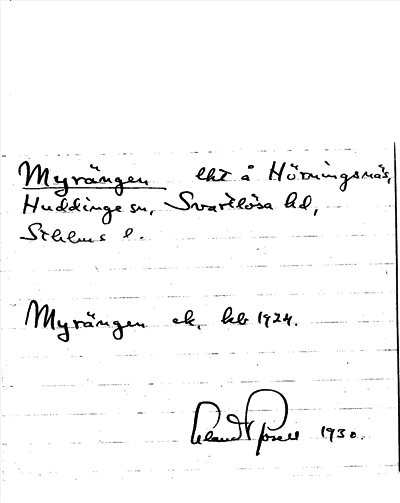 Myrängen lht å Hörningsnäs,
Huddinge sn, Svartlösa hd,
Sthlms l.
Myrängen ek. kb 1924.
1930.